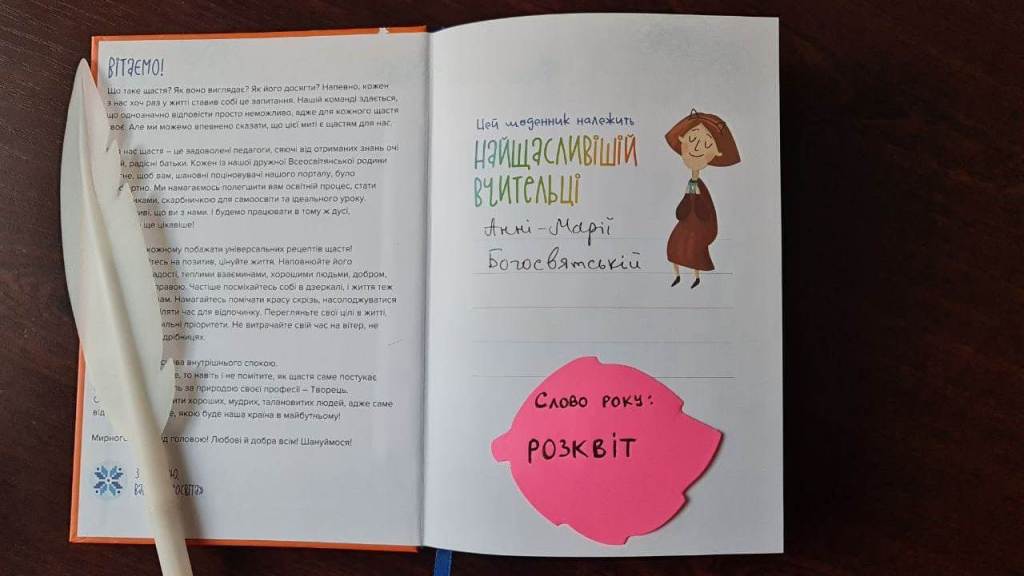 ВІТАЄМО!
Що таке щастя? Як воно виглядає? Як його досягти? Напевно, кожен
з нас хоч раз у житті ставив собі це запитання. Нашій команді здається,
що однозначно відповісти просто неможливо, адже для кожного щастя
своє. Але ми можемо впевнено сказати, що цієї миті є щастям для нас.
нас щастя – це задоволені педагоги, сяючі від отриманих знань очі
радісні батьки. Кожен із нашої дружної Всеосвітянської родини
щоб вам, шановні поціновувачі нашого порталу, було
Ми намагаємось полегшити вам освітній процес, стати
скарбничкою для самоосвіти та ідеального уроку.
що ви з нами. І будемо працювати в тому ж дусі,
ще цікавіше!
кожному побажати універсальних рецептів щастя!
на позитив, цінуйте життя. Наповнюйте його
теплими взаєминами, хорошими людьми, добром,
Частіше посміхайтесь собі в дзеркалі, і життя теж
Намагайтесь помічати красу скрізь, насолоджуватися
час для відпочинку. Перегляньте свої цілі в житті,
пріоритети. Не витрачайте свій час на вітер, не
внутрішнього спокою.
то навіть і не помітите, як щастя саме постукає
за природою своєї професії – Творець.
хороших, мудрих, талановитих людей, адже саме
від якою буде наша країна в майбутньому!
головою! Любові й добра всім! Шануймося!
Цей щоденник належить
НАЙЩАСЛИВІШІЙ
ВЧИТЕЛЬЦІ
Анні-Марії
Богосвятській
Слово року:
РОЗКВІТ